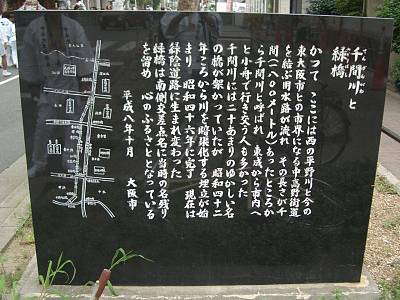 千間川と
緑橋
かつて ここには西の平野川と今の
東大阪市との市界になる中高野街道
を結ぶ用水路が流れ その長さが千
間(一八〇〇メートル)あったところか
ら千間川と呼ばれ 東成から市内へ
と小舟で行き交う人も多かった
千間川には二十あまりのゆかしい名
の橋が架かっていたが 昭和四十二
年ころから川を暗渠化する埋立が始
まり 昭和四十六年に完了 現在は
緑陰道路に生まれ変わった
緑橋は南側交差点名に当時の名残り
を留め 心のふるさととなっている
平成八年十月 大阪市